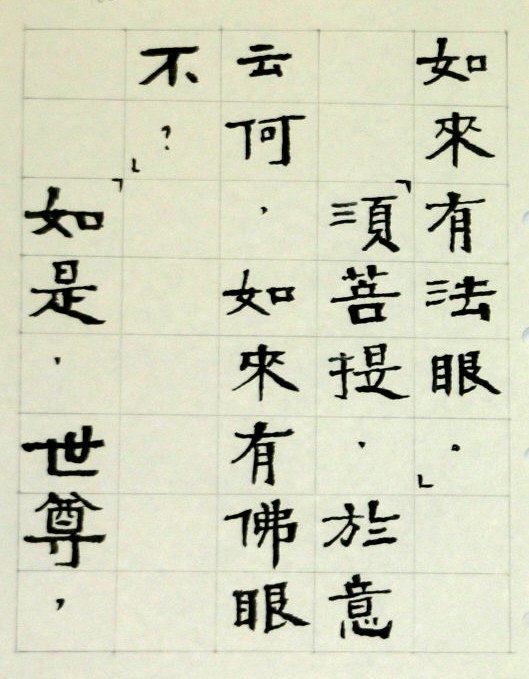 如來有法眼．」
「須菩提．於意
云何，如來有佛眼
不？」
「如是．世尊，